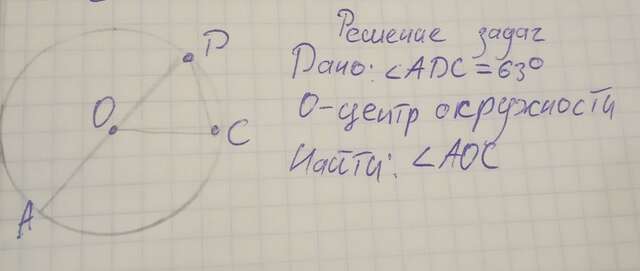 Решение задач
Дано: ∠ADC = 63°
О-центр окружности
Найти: ∠AOC
D
O
C
A